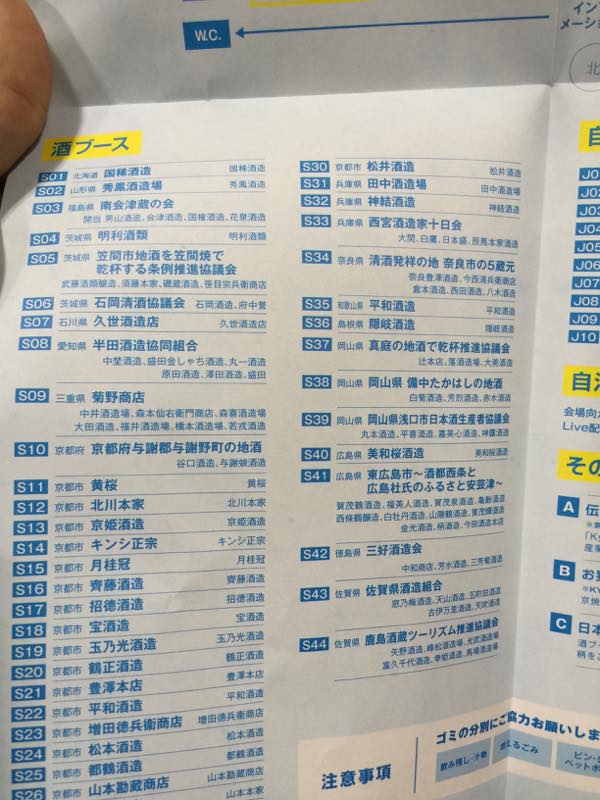 W.C.
イン
メーショ
北
酒ブース
S01 北海道 国稀酒造 国稀酒造
S02 山形県 秀鳳酒造場 秀鳳酒造
S03 福島県 南会津蔵の会
開当 男山酒造、会津酒造、国権酒造、花泉酒造
S04 茨城県 明利酒類 明利酒類
S05 茨城県 笠間市地酒を笠間焼で
乾杯する条例推進協議会
武藤酒類醸造、須藤本家、磯蔵酒造、笹目宗兵衛商店
S06 茨城県 石岡清酒協議会 石岡酒造、府中誉
S07 石川県 久世酒造店 久世酒造店
S08 愛知県 半田酒造協同組合
中埜酒造、盛田金しゃち酒造、丸一酒造
原田酒造、澤田酒造、盛田
S09 三重県 菊野商店
中井酒造場、森本仙右衛門商店、森喜酒造場
大田酒造、福井酒造場、橋本酒造場、若戎酒造
S10 京都府 京都府与謝郡与謝野町の地酒
谷口酒造、与謝娘酒造
S11 京都市 黄桜 黄桜
S12 京都市 北川本家 北川本家
S13 京都市 京姫酒造 京姫酒造
S14 京都市 キンシ正宗 キンシ正宗
S15 京都市 月桂冠 月桂冠
S16 京都市 齊藤酒造 齊藤酒造
S17 京都市 招德酒造 招德酒造
S18 京都市 宝酒造 宝酒造
S19 京都市 玉乃光酒造 玉乃光酒造
S20 京都市 鶴正酒造 鶴正酒造
S21 京都市 豊澤本店 豊澤本店
S22 京都市 平和酒造 平和酒造
S23 京都市 増田德兵衞商店 増田德兵衞商店
S24 京都市 松本酒造 松本酒造
S25 京都市 都鶴酒造 都鶴酒造
S26 京都市 山本勘蔵商店 山本勘蔵商店
山本本家
S30 京都市 松井酒造 松井酒造
S31 兵庫県 田中酒造場 田中酒造場
S32 兵庫県 神結酒造 神結酒造
S33 兵庫県 西宮酒造家十日会
大関、白鷹、日本盛、辰馬本家酒造
S34 奈良県 清酒発祥の地 奈良市の5蔵元
奈良豊澤酒造、今西清兵衛商店
倉本酒造、西田酒造、八木酒造
S35 和歌山県 平和酒造 平和酒造
S36 島根県 隠岐酒造 隠岐酒造
S37 岡山県 真庭の地酒で乾杯推進協議会
辻本店、落酒造場、大美酒造
S38 岡山県 岡山県 備中たかはしの地酒
白菊酒造、芳烈酒造、赤木酒造
S39 岡山県 岡山県浅口市日本酒生産者協議会
丸本酒造、平喜酒造、嘉美心酒造、神露酒造
S40 広島県 美和桜酒造 美和桜酒造
S41 広島県 東広島市〜酒都西条と
広島杜氏のふるさと安芸津〜
賀茂鶴酒造、福美人酒造、賀茂泉酒造、亀齢酒造
西條鶴醸造、白牡丹酒造、山陽鶴酒造、賀茂輝酒造
金光酒造、柄酒造、今田酒造本店
S42 徳島県 三好酒造会
中和商店、芳水酒造、三芳菊酒造
S43 佐賀県 佐賀県酒造組合
窓乃梅酒造、天山酒造、五町田酒造
古伊万里酒造、天吹酒造
S44 佐賀県 鹿島酒蔵ツーリズム推進協議会
矢野酒造、峰松酒造場、光武酒造場
富久千代酒造、幸姫酒造、馬場酒造場
ゴミの分別にご協力お願いしま
注意事項
飲み残し・汁物
燃えるごみ
ビン・
ペットボ
自
J01
J02
J03
J04
J05
J06
J07
J08
J09
J10
自酒
会場向か
Live配
その
A 伝
「Ky
産業
B お
※KY
京焼
C 日本
酒ブ
柄をこ